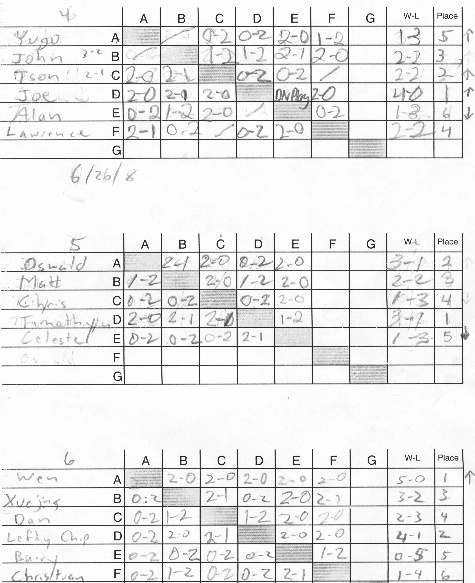 4 A B C D E F G W-L Place
Yugo A 0-2 0-2 2-0 1-2 1-3 5 ↑
John 3-2 B 1-2 1-2 2-1 2-0 2-2 3
Tson 2-1 C 2-0 2-1 0-2 0-2 / 2-2 2 ↑
Joe D 2-0 2-1 2-0 DN Play 2-0 4-0 1 ↑
Alan E 0-2 1-2 2-0 / 0-2 1-3 6 ↓
Lawrence F 2-1 0-2 / 0-2 2-0 2-2 4
G
6/26/8
5 A B C D E F G W-L Place
Oswald A 2-1 2-0 0-2 2-0 3-1 2
Matt B 1-2 2-0 1-2 2-0 2-2 3
C 0-2 0-2 0-2 2-0 1-3 4
D 2-0 2-1 2-0 1-2 3-1 1
Celeste E 0-2 0-2 0-2 2-1 1-3 5 ↓
Oswald F
G
6 A B C D E F G W-L Place
Wen A 2-0 2-0 2-0 2-0 2-0 5-0 1 ↑
B 0-2 2-1 0-2 2-0 2-1 3-2 3
Dan C 0-2 1-2 1-2 2-0 2-0 2-3 4
Lefty Chip D 0-2 2-0 2-1 2-0 2-0 4-1 2
Barry E 0-2 0-2 0-2 0-2 1-2 0-5 5
Christian F 0-2 1-2 0-2 0-2 2-1 1-4 6